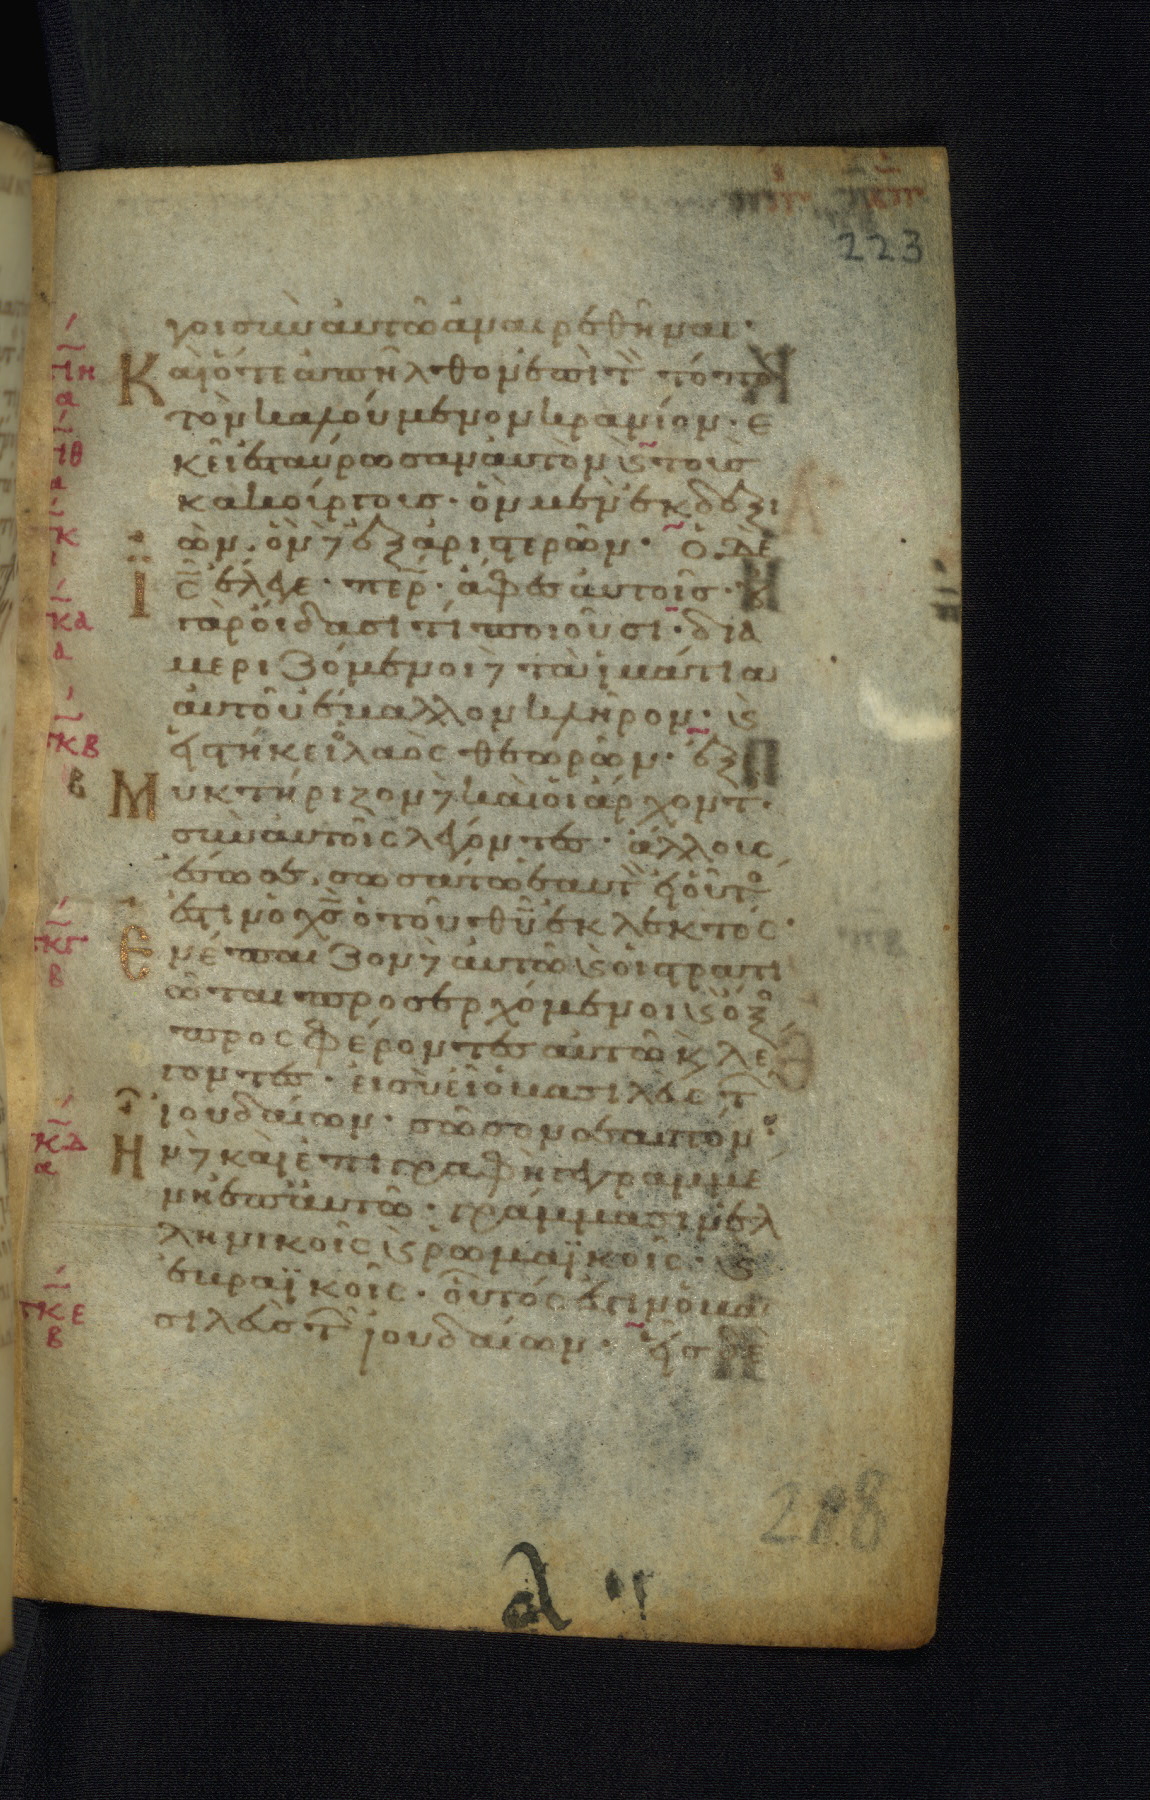 223
γοι σὺν αὐτῶ ἀναιρεθῆναι·
Καὶ ὅτε ἀπῆλθον ἐπὶ τ τόπον
τὸν καλούμενον κρανίον· ἐ
κεῖ ἐσταύρωσαν αὐτὸν ϗ τοὺσ
κακούργους· ὃν μὲν ἐκ δεξι
ῶν· ὃν δὲ ἐξ ἀριστερῶν· ὁ δὲ
ις ἔλεγε· περ· ἄφες αὐτοῖς· οὐ
γὰρ οἴδασι τί ποιοῦσι· δια
μεριζόμενοι δὲ τὰ ἱμάτια
αὐτοῦ ἔβαλλον κλῆρον· ϗ
εἱστήκει ὁ λαὸς θεωρῶν· ἐξε
Μυκτήριζον δὲ καὶ οἱ ἄρχοντ
σὺν αὐτοῖς λέγοντες· ἄλλους
ἔσωσε, σωσάτω ἑαυτ εἰ οὗτο
ἐστιν ὁ χς ὁ τοῦ θυ ἐκλεκτός·
Ἐνέπαιζον δὲ αὐτῶ ϗ οἱ στρατι
ῶται προσερχόμενοι ϗ ὄξο
προσφέροντες αὐτῶ κ λέ
γοντες· εἰ σὺ εἶ ὁ βασιλεὺς τ
ἰουδαίων· σῶσον σεαυτόν·
Ἦν δὲ καὶ ἐπιγραφὴ γεγραμμέ
νη ἐπ αὐτῶ· γράμμασιν ἑλ
ληνικοῖς ϗ ῥωμαϊκοῖς· ϗ
ἑβραϊκοῖς· οὗτός ἐστιν ὁ βα
σιλεὺς τ ἰουδαίων· εἷσ δὲ
208